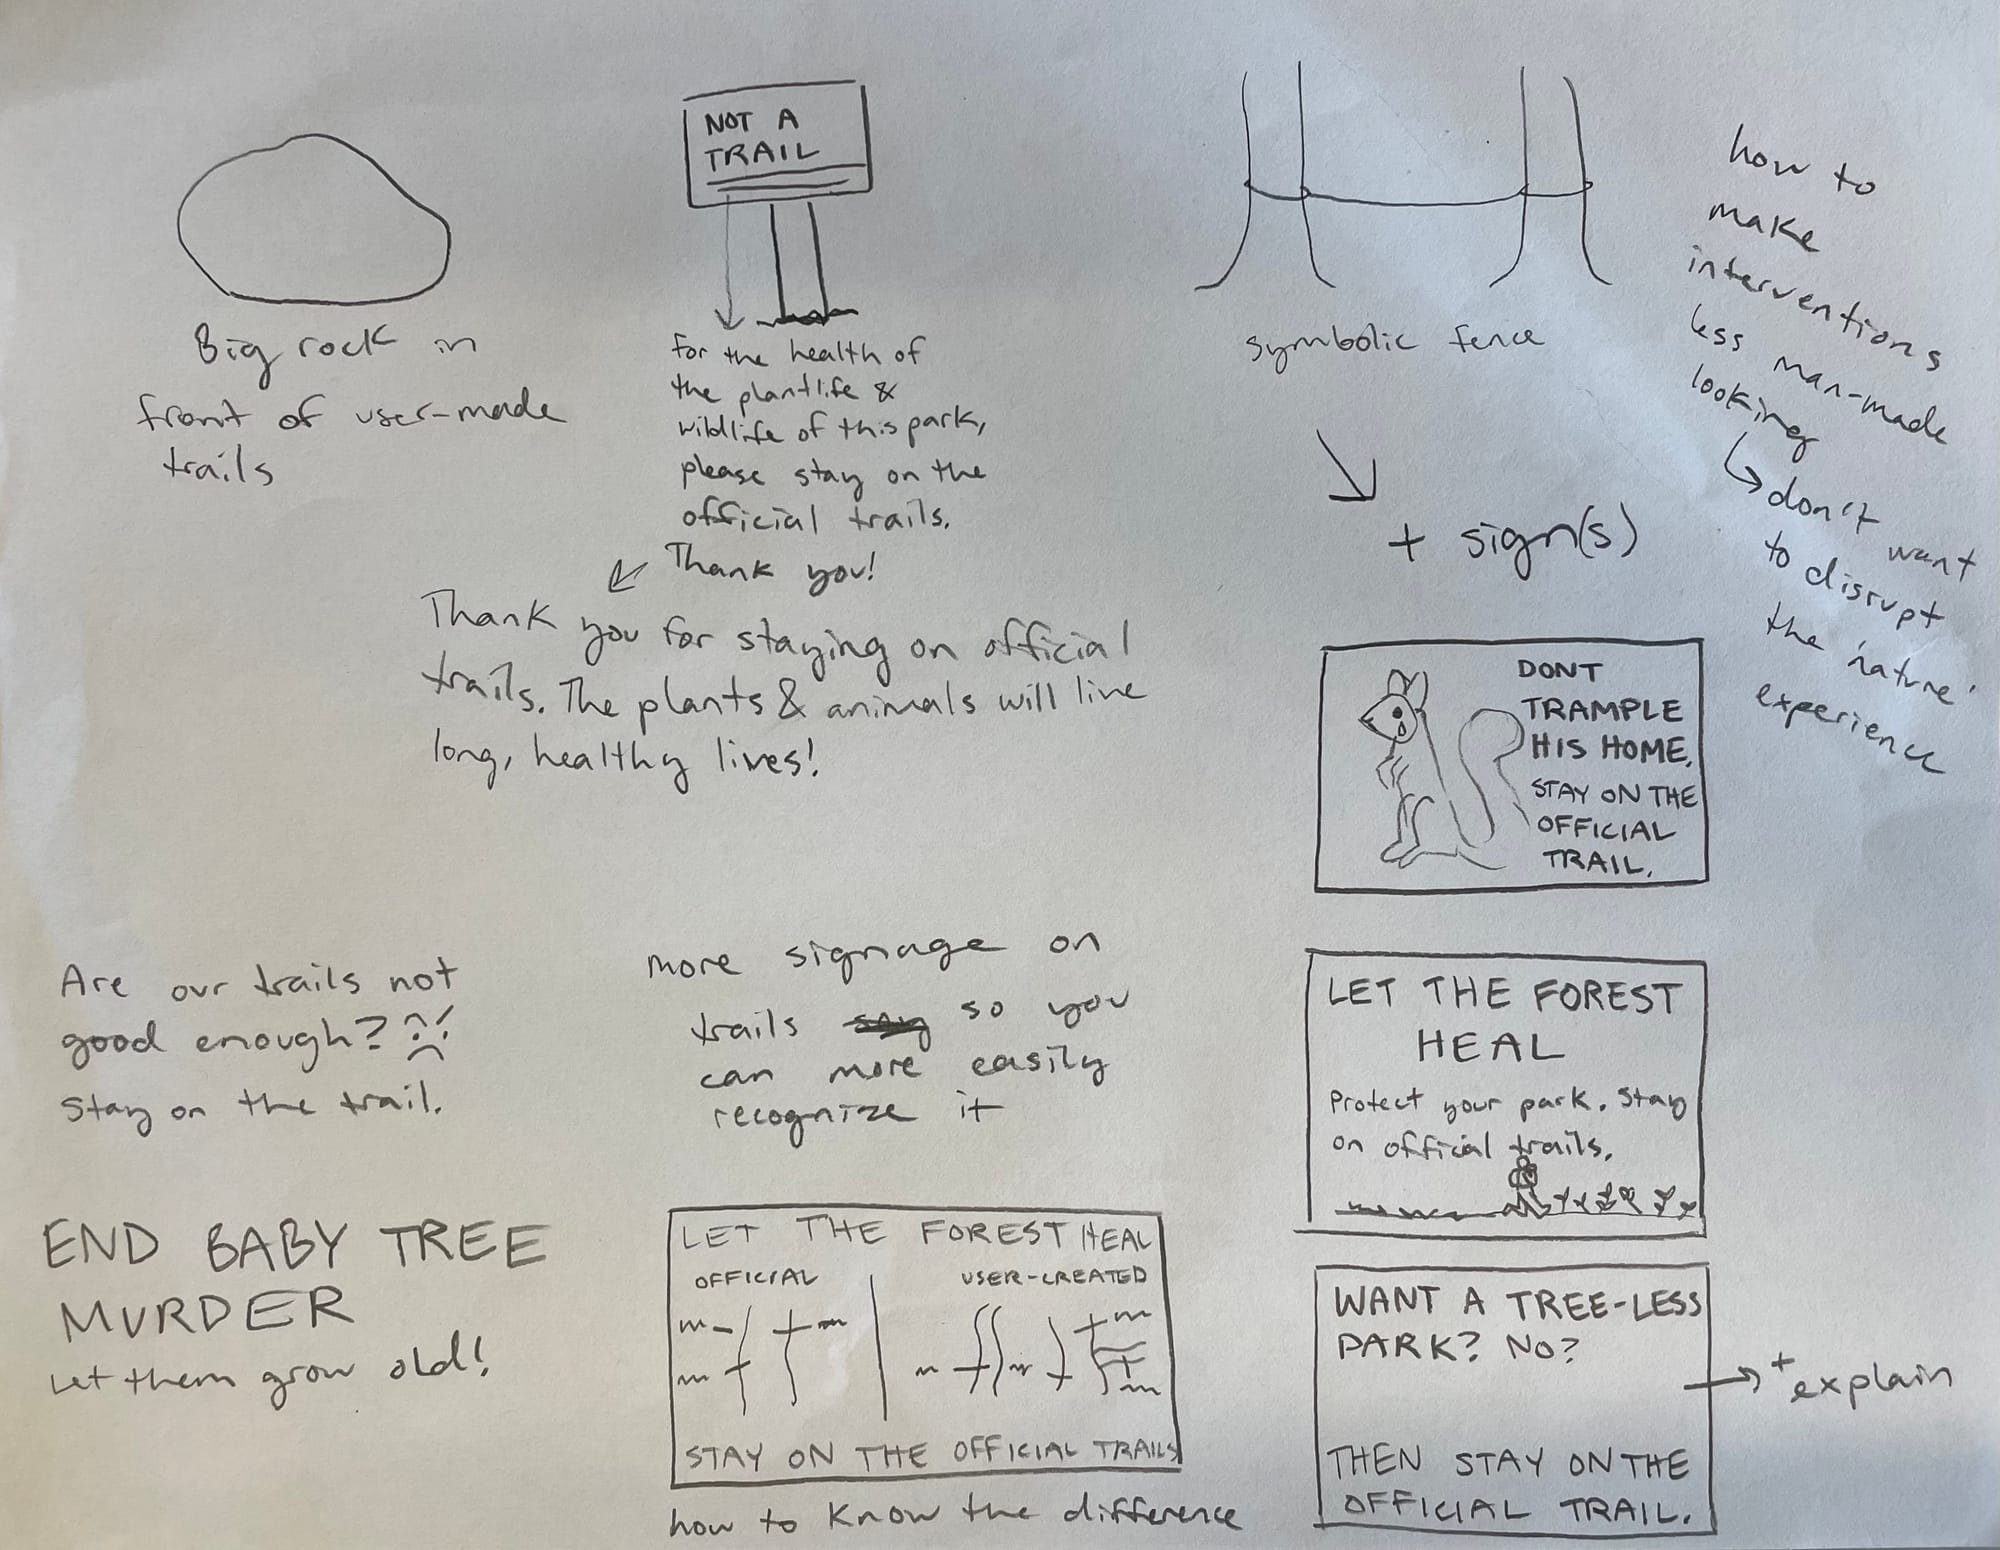 Big rock in
front of user-made
trails
NOT A
TRAIL
for the health of
the plantlife &
wildlife of this park,
please stay on the
official trails.
Thank you!
Thank you for staying on official
trails. The plants & animals will live
long, healthy lives!
symbolic fence
+ sign(s)
how to
make
interventions
less man-made
looking
don't want
to disrupt
the 'nature'
experience
DONT
TRAMPLE
HIS HOME.
STAY ON THE
OFFICIAL
TRAIL.
Are our trails not
good enough?
Stay on the trail.
more signage on
trails so you
can more easily
recognize it
LET THE FOREST
HEAL
Protect your park. Stay
on offical trails.
END BABY TREE
MURDER
Let them grow old!
LET THE FOREST HEAL
OFFICIAL USER-CREATED
STAY ON THE OFFICIAL TRAILS
how to know the difference
WANT A TREE-LESS
PARK? NO?
+ explain
THEN STAY ON THE
OFFICIAL TRAIL.